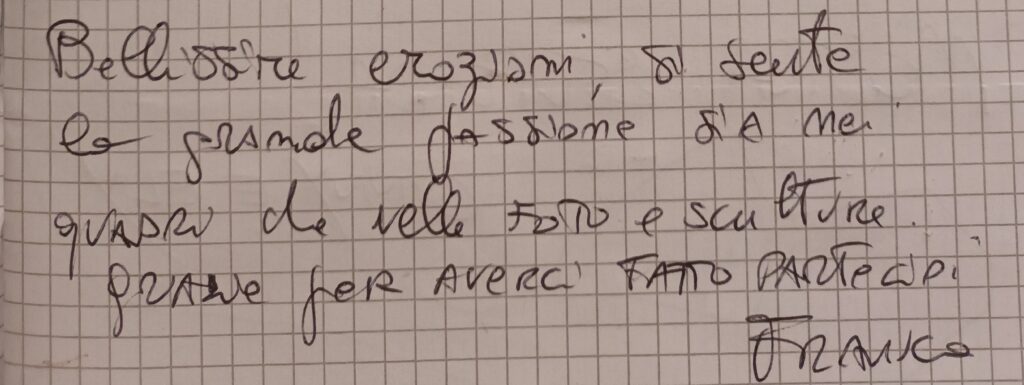 Bellissime emozioni, si sente
la grande passione sia nei
quadri che nelle foto e sculture.
grazie per averci fatto partecipi
Franco